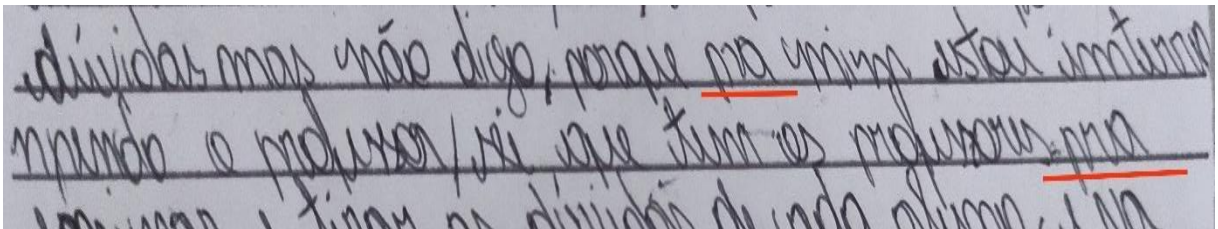 dúvidas mas não digo, porque pra mim estou imterro
npendo o professor, sei que tem os professores pra
e tirar as dúvidas de cada aluno, e na